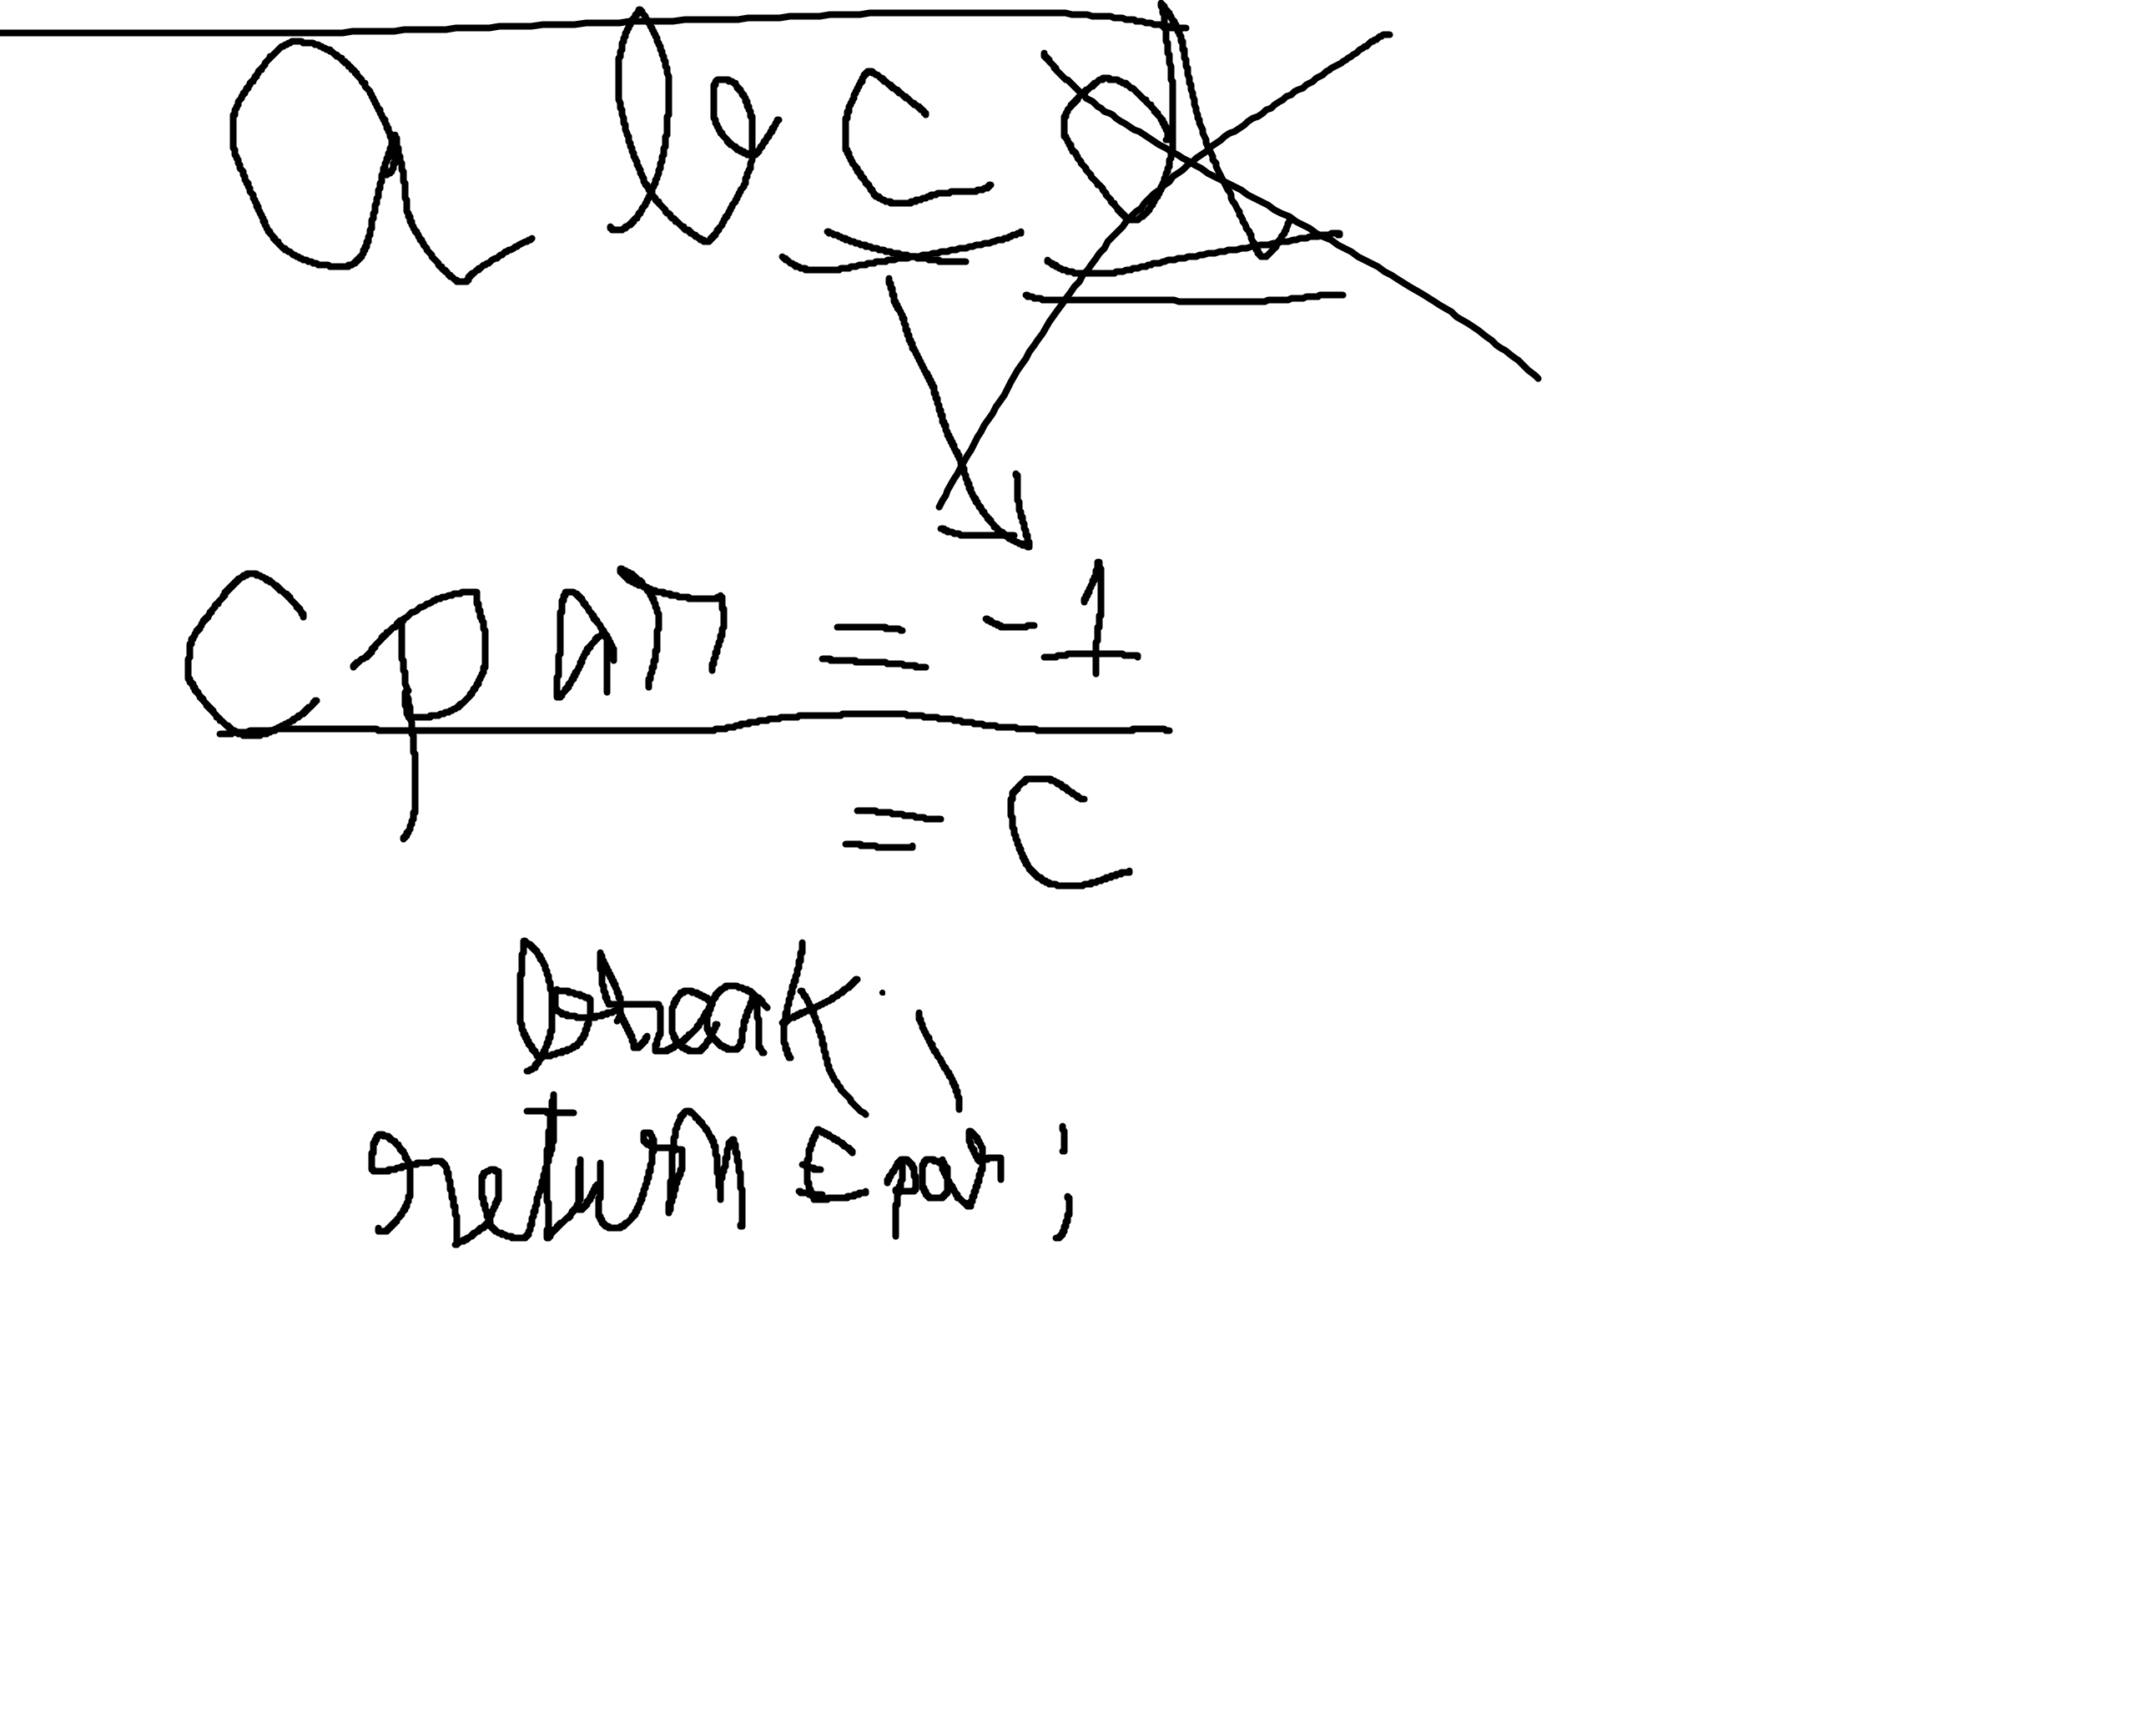 a b c d
cpan = -1
= C
break;
return cpar;